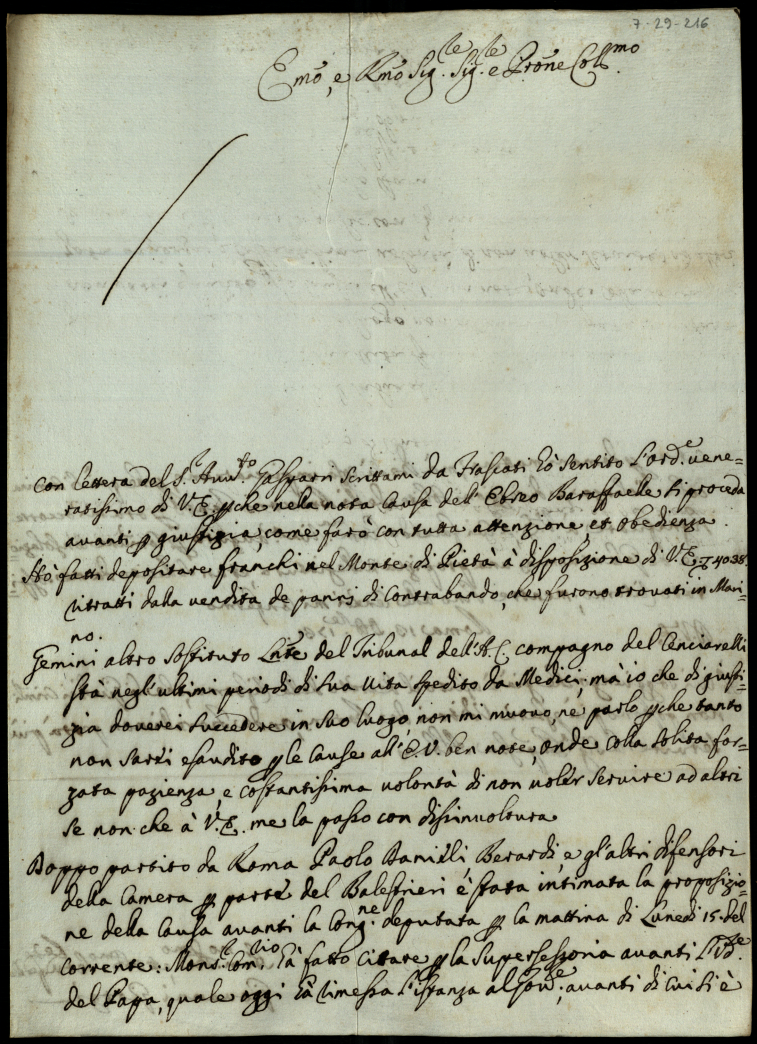 7-29-216
Emo, e Rmo Sig.re Sig.re e Prone Coll.mo
Con lettera del S.r Auu.to Gasparri Scrittami da Frascati hò sentito l'ord.e uene=
ratissimo di V.E. pche nella nota Causa dell'Ebreo Baraffaelle si proceda
auanti p giustizia, come farò con tutta attenzione, et obedienza.
Hò fatti depositare franchi nel Monte di Pietà à disposizione di V.E. 4038
ritratti dalla uendita de panni di Contrabando, che furono trouati in Mari=
no.
Gemini altro Sostituto Lnte del Tribunal dell'A.C. compagno del Cenciarelli
stà negl'ultimi periodi di sua uita spedito da Medici; mà io che di giusti=
zia douerei succedere in suo luogo, non mi muouo, nè parlo pche tanto
non sarei esaudito p le Cause all'E.V. ben note, onde colla solita for=
zata pazienza, e costantissima uolontà di non uoler seruire ad altri
se non che à V.E. me la passo con disinuoltura.
Doppo partito da Roma Paolo Danielli Berardi, e gl'altri difensori
della Camera p parte del Balestrieri è stata intimata la proposizio=
ne della Causa auanti la Cong.ne deputata p la mattina di Lunedì 15. del
corrente: Mons.r Com.rio hà fatto citare p la Supersessoria auanti l'Vd.re
del Papa, quale oggi hà rimessa l'istanza al, auanti di cui si è